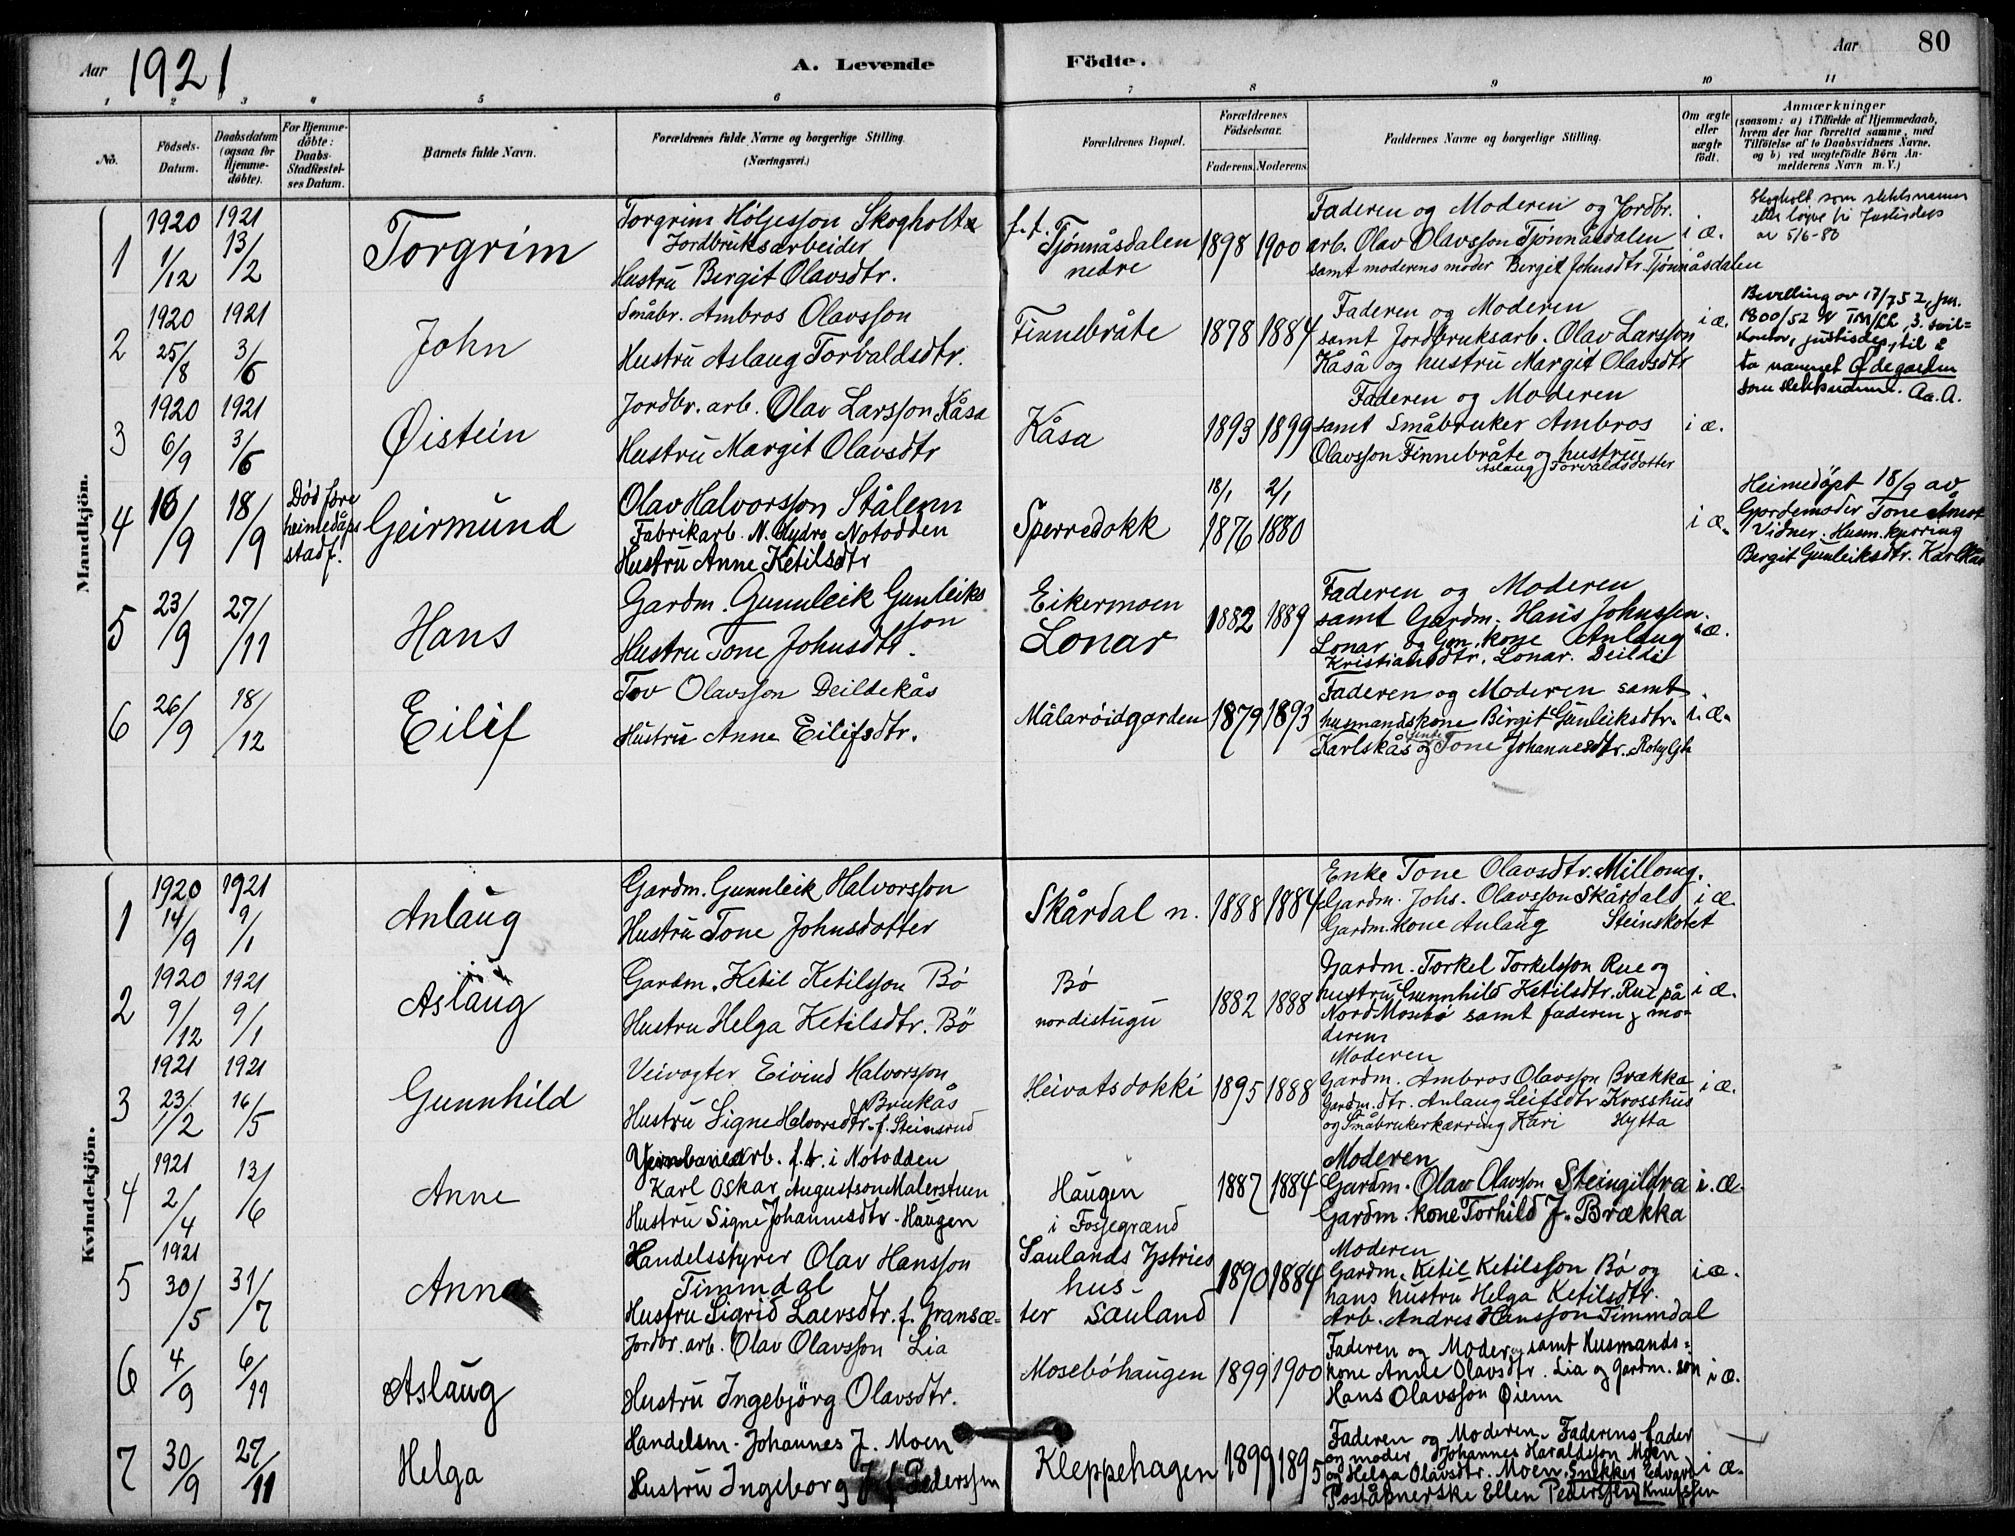 Aar 1921
A. Levende Fødte.
Aar 80
1 2 3 4 5 6 7 8 9 10 11
No.
Fødsels-Datum.
Daabsdatum (ogsaa for Hjemme-døbte).
For Hjemme-døbte: Daabs-Stadfæstel-ses Datum.
Barnets fulde Navn.
Forældrenes fulde Navne og borgerlige Stilling. (Næringsvei.)
Forældrenes Bopæl.
Forældrenes Fødselsaar.
Faderens. Moderens.
Faddernes Navne og borgerlige Stilling.
Om ægte eller uægte født.
Anmærkninger
(saasom: a) i Tilfælde af Hjemmedaab, hvem der har forrettet samme, med Tilføielse af to Daabsvidners Navne, og b) ved uægtefødte Børn Anmelderens Navn m.V.)
Mandkjön.
1 1920 1/12 1921 13/2 Torgrim
Torgrim Höljesson Skogholt
Jordbruksarbeider
Hustru Bergit Olavsdtr.
f.t. Tjönnåsdalen nedre
1898 1900
Faderen og Moderen og Jordbr.
arb. Olav Olavsson Tjönnåsdalen
samt moderens moder Bergit Johnsdtr. Tjönnåsdalen
i æ.
Skogholt som slektsnamn
av 5/6-80
2 1920 25/8 1921 3/5 John
Småbr. Ambros Olavsson
Hustru Aslaug Torvaldsdtr.
Finnebråte
1878 1884
Faderen og Moderen
samt Jordbruksarb. Olav Larsson
Kåså og hustru Margit Olavsdtr
i æ.
Bevilling av 17/7 52, jnr.
1800/52
kontor, justisdep, til å
ta namnet Ødegarden
som slektsnamn. Aa. A.
3 1920 6/9 1921 3/5 Øistein
Jordbr. arb. Olav Larsson Kåsa
Hustru Margit Olavsdtr
Kåsa
1893 1899
Faderen og Moderen
samt Småbruker Ambros
Olavsson Finnebråte og hustrue
Aslaug Torvaldsdotter
i æ.
4 16/9 18/9 Död före heimedåps stadf. Geirmund
Olav Halvorsson Stålenn
Fabrikarb. N. Hydro Notodden
Hustru Anne Ketilsdtr
Sperredokk
18/1 1876 2/1 1880
i æ.
Heimedöpt 18/9 av
Gjordemoder Tone
Vidner: Husm. kjerring
Bergit Gunleiksdtr. Karlskås
5 23/9 27/11 Hans
Gardm. Gunnleik Gunleiksson
Hustru Tone Johnsdtr.
Eikermoen
Lonar
1882 1889
Faderen og Moderen
samt Gardm. Hans Johnssen
Lonar og Gm. kone Anlaug
Kristiansdtr. Lonar. Deildi
i æ.
6 26/9 18/12 Eilif
Tov Olavsson Deildekås
Hustru Anne Eilifsdtr.
Målaröidgarden
1879 1893
Faderen og Moderen samt
husmandskone Birgit Gunleiksdtr.
Karlskås og Tone Johannesdtr.
i æ.
Kvindekjön.
1 1920 14/9 1921 9/1 Anlaug
Gardm. Gunnleik Halvorsson
Hustru Tone Johnsdotter
Skårdal n.
1888 1884
Enke Tone Olavsdtr. Millomg.
Gardm. Johs. Olavsson Skårdal
Gardm. Kone Anlaug Steinskotet
i æ.
2 1920 9/12 1921 9/1 Aslaug
Gardm. Ketil Ketilsson Bö
Hustru Helga Ketilsdtr. Bö
Bö
nordistugu
1882 1888
Gardm. Torkel Torkelsson Rue og
hustru Gunnhild Ketilsdtr. Rue på
Nord Mosebö samt faderen & mo-
deren
i æ.
3 1921 23/2 1921 16/5 Gunnhild
Veivogter Eivind Halvorsson
Brukås
Hustru Signe Halvorsdtr. f. Steinsrud
Heivatsdokki
1895 1888
Moderen
Gardm. Ambros Olavsson Brækka
Gardm. dtr. Anlaug Leifsdtr Krosshus
og Småbrukerkærring Kari Hytta
i æ.
4 1921 2/4 13/6 Anne
arb. f.t. i Notodden
Karl Oskar Augustson Malerstuen
Hustru Signe Johannesdtr. Haugen
Haugen
i Fossegrænd
1887 1884
Moderen
Gardm. Olav Olavson Steingildra
Gardm. kone Torhild J. Brækka
i æ.
5 1921 30/5 31/7 Anna
Handelsstyrer Olav Hansson
Timmdal
Hustru Sigrid Laevsdtr. f. Gransæ-
ter
Saulands Ystries
hus-
Sauland
1890 1884
Moderen
Gardm. Ketil Ketilsson Bö og
hans hustru Helga Ketilsdtr.
Arb. Andres Hansson Timmdal
i æ.
6 4/9 6/11 Aslaug
Jordbr. arb. Olav Olavsson Lia
Hustru Ingebjörg Olavsdtr.
Moseböhaugen
1899 1900
Faderen og Moder samt Husmands-
kone Anne Olavsdtr. Lia og Gardm. sön
Hans Olavsson Øienn
i æ.
7 30/9 27/11 Helga
Handelsm. Johannes J. Moen
Hustru Ingeborg J. f. Pederssen
Kleppehagen
1899 1895
Faderen og Moderen. Faderens fader
og moder Johannes Haraldsson Moen
og Helga Olavsdtr. Moen. Snekker Edvard
Poståpnerske Ellen Pederssen Knutssen
i æ.